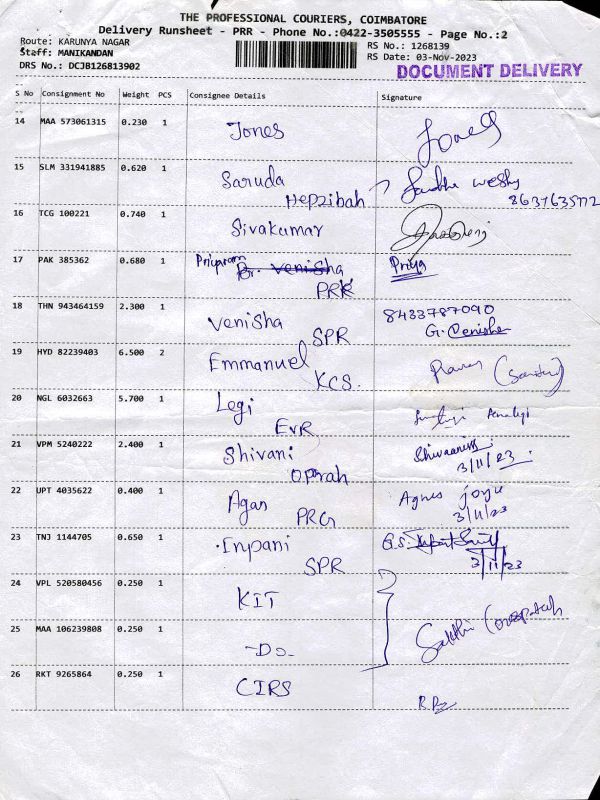 THE PROFESSIONAL COURIERS, COIMBATORE
Delivery Runsheet - PRR - Phone No.:0422-3505555 - Page No.:2
Route: KARUNYA NAGAR
Staff: MANIKANDAN
DRS No.: DCJB126813902
RS No.: 1268139
RS Date: 03-Nov-2023
DOCUMENT DELIVERY
S No Consignment No Weight PCS Consignee Details Signature
14 MAA 573061315 0.230 1 Jones Jones
15 SLM 331941885 0.620 1 Saruda
Hepzibah 8637635772
16 TCG 100221 0.740 1 Sivakumar
17 PAK 385362 0.680 1 Priyaram Dr. Venisha Priya
PRK
18 THN 943464159 2.300 1 Venisha 8433787090
SPR G. Venisha
19 HYD 82239403 6.500 2 Emmanuel
KCS.
20 NGL 6032663 5.700 1 Legi
EVR
21 VPM 5240222 2.400 1 Shivani
Oprah 3/11/23
22 UPT 4035622 0.400 1 Agan Agnes joyce
PRG 3/11/23
23 TNJ 1144705 0.650 1 Inpani G.S.
SPR 3/11/23
24 VPL 520580456 0.250 1 KIT
25 MAA 106239808 0.250 1 -Do- Sakthi
26 RKT 9265864 0.250 1 CIRS